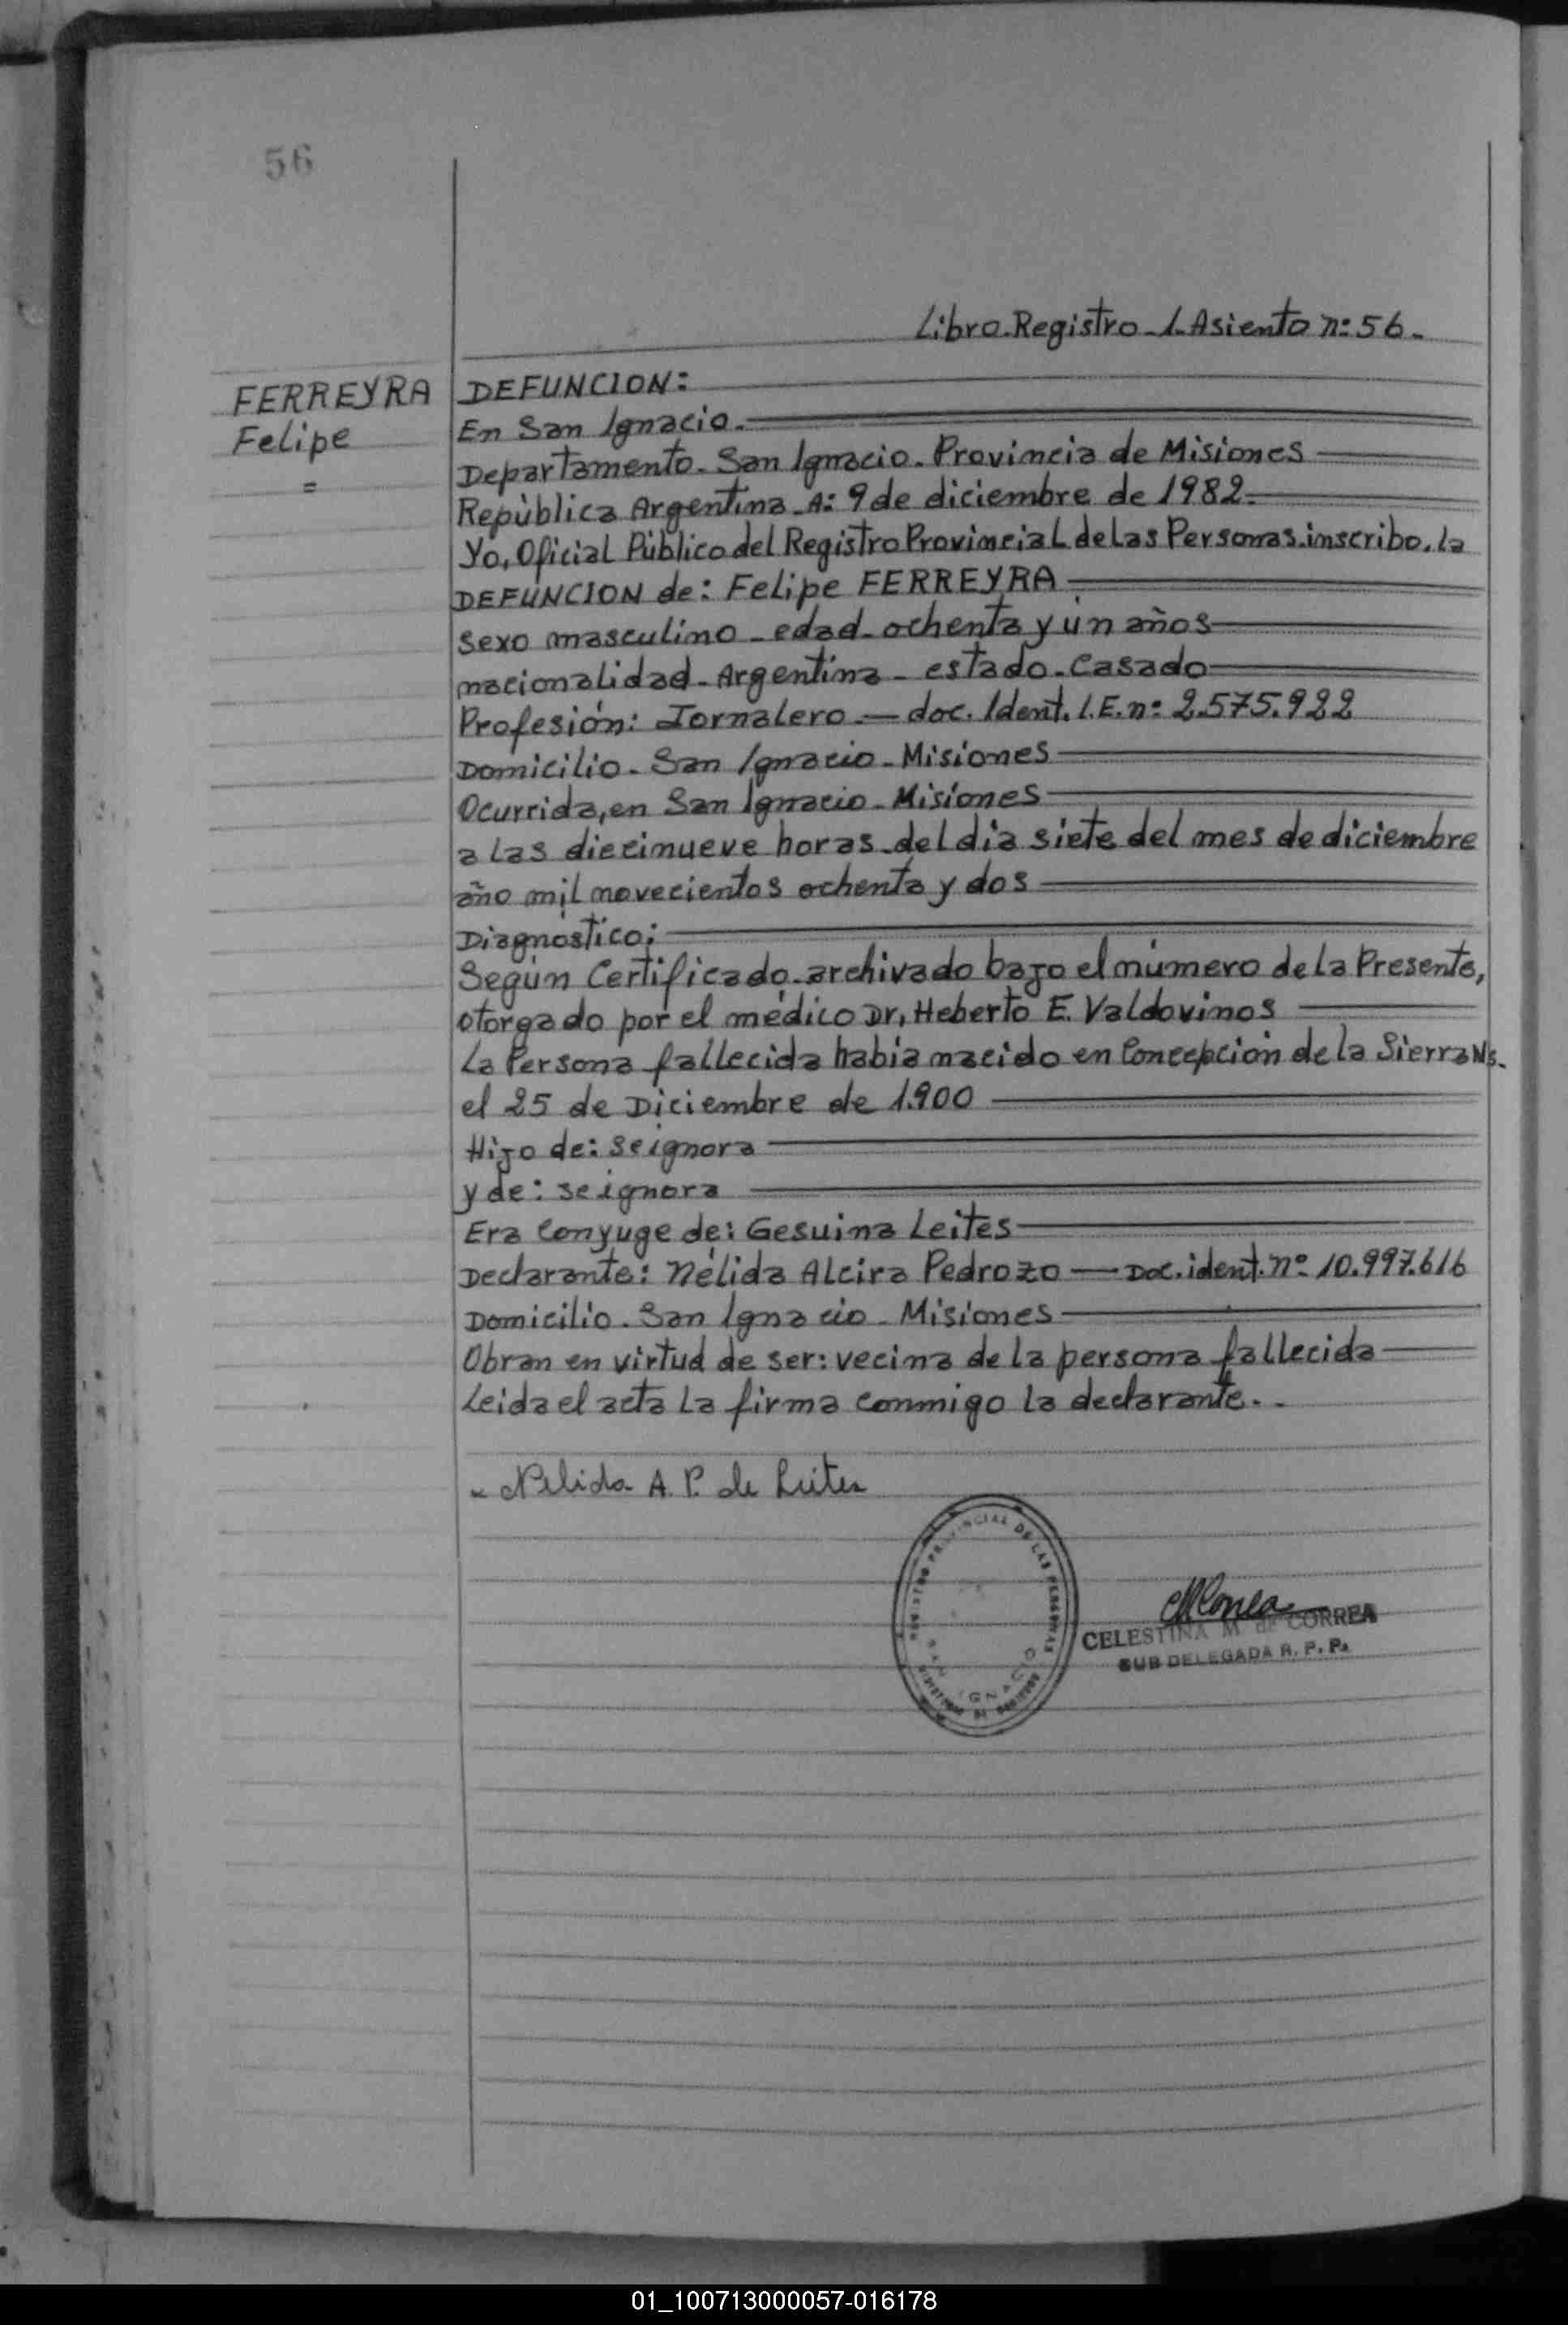 56
Libro.Registro-1-Asiento nº 56.
FERREYRA
Felipe
=
DEFUNCION:
En San Ignacio.
Departamento. San Ignacio. Provincia de Misiones
República Argentina. A: 9 de diciembre de 1982.
Yo, Oficial Público del Registro Provincial de las Personas. inscribo. la
DEFUNCION de: Felipe FERREYRA
sexo masculino - edad - ochenta y ún años
nacionalidad - Argentina - estado - Casado
Profesión: Jornalero. — doc. Ident. I.E. nº 2.575.922
Domicilio. San Ignacio - Misiones
Ocurrida, en San Ignacio - Misiones
a las diecinueve horas - del día siete del mes de diciembre
año mil novecientos ochenta y dos
Diagnóstico:
Según Certificado - archivado bajo el número de la Presente,
otorgado por el médico Dr, Heberto E. Valdovinos
La Persona fallecida había nacido en Concepción de la Sierra Ms.
el 25 de Diciembre de 1.900
Hijo de: se ignora
y de: se ignora
Era Conyuge de: Gesuina Leites
Declarante: Nélida Alcira Pedrozo — Doc. ident. nº 10.997.616
Domicilio. San Ignacio - Misiones
Obran en virtud de ser: vecina de la persona fallecida
Leida el acta La firma conmigo la declarante. -
Nelida A. P. de Leites
REGISTRO PROVINCIAL DE LAS PERSONAS
SAN IGNACIO
CELESTINA M. de CORREA
SUB DELEGADA R. P. P.
01_100713000057-016178